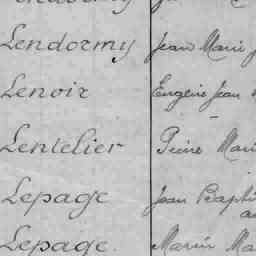 Lendormy Jean Marie
Lenoir Eugène Jean
Lentelier Pierre Marie
Lepage Jean Bapti
Lepage Marin Ma